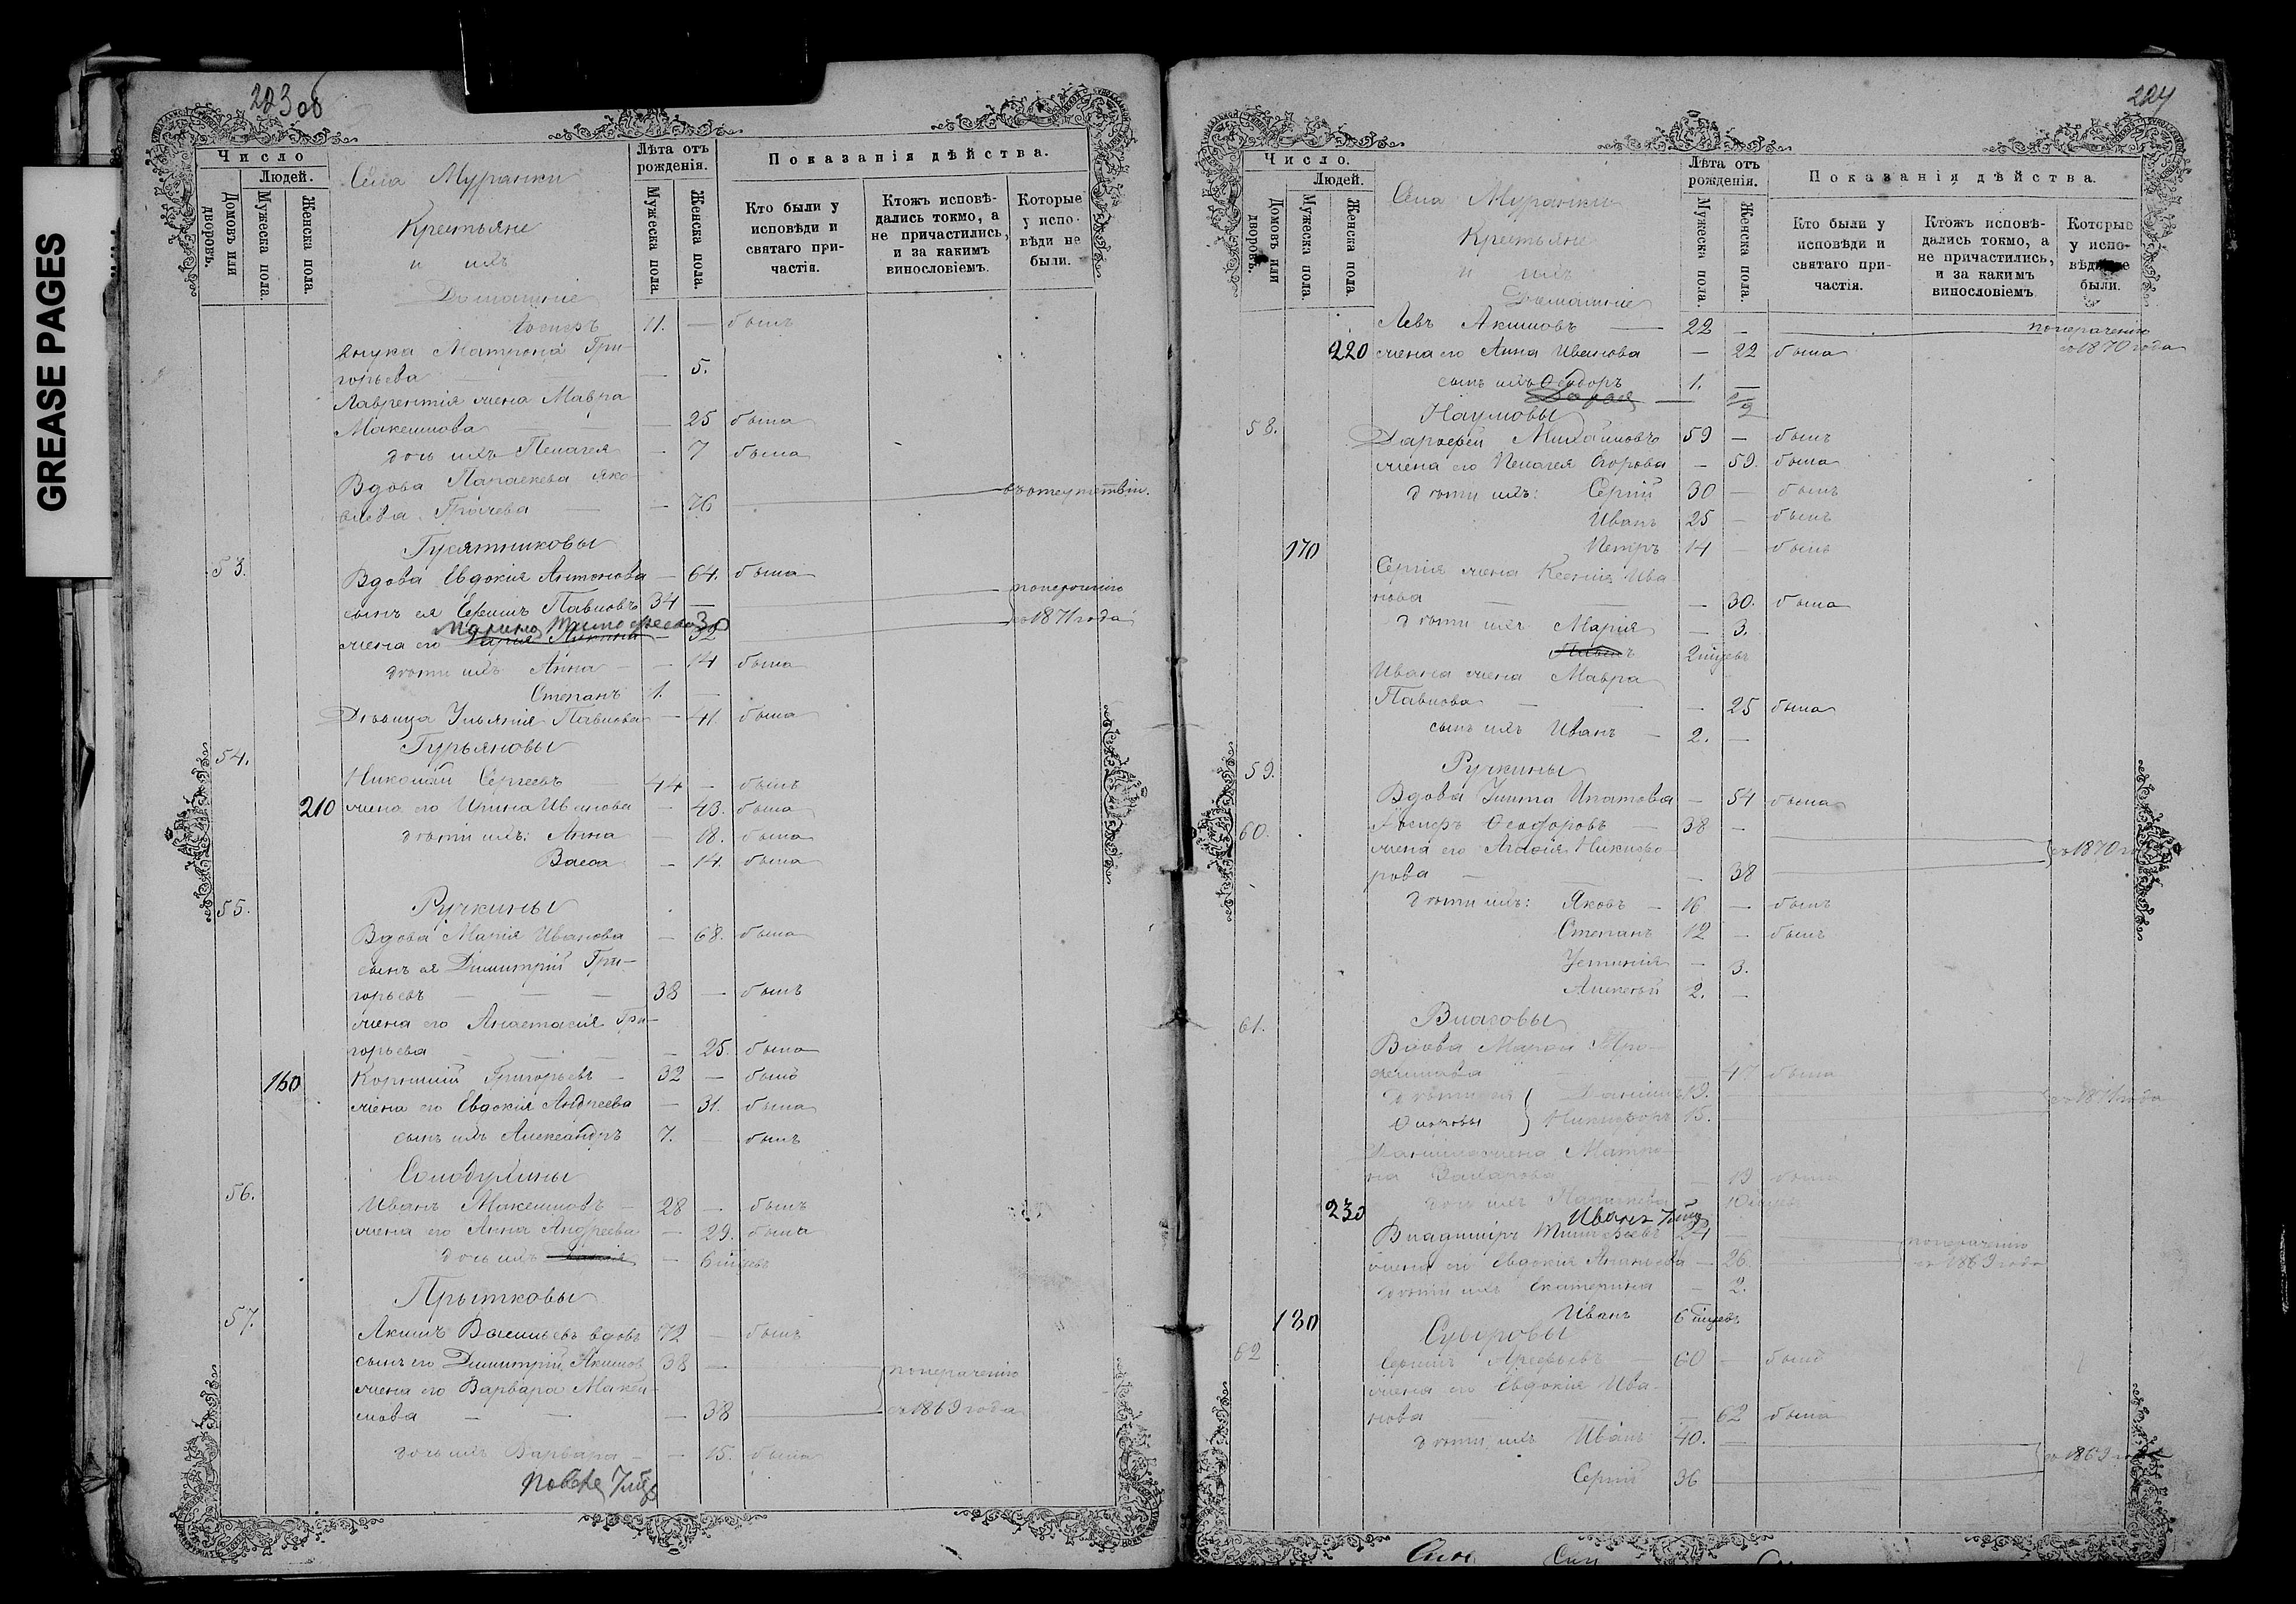 GREASE PAGES
223 об
Число
Людей.
Домовъ или дворовъ.
Мужеска пола.
Женска пола.
Села Муранки
Крестьяне
и ихъ
Домашніе
Лѣта отъ рожденія.
Мужеска пола.
Женска пола.
Показанія дѣйства.
Кто были у исповѣди и святаго причастія.
Ктожъ исповѣдались токмо, а не причастились, и за какимъ винословіемъ.
Которые у исповѣди не были.
11. — былъ
внука Матрона Гри-
горьева — 5.
Лаврентія жена Мавра
Максимова — 25 была
дочь ихъ Пелагея — 7 была
Вдова Параскева Яко-
влева Грачева — 76 въ отсутствіи.
53. Гусятниковы
Вдова Евдокія Антонова — 64. была
сынъ ея Ефимъ Павловъ 34 — по нерачению
Марина Тимофеева 30
жена его — 32 съ 1871 года
дѣти ихъ Анна — 14 была
Степанъ 1. —
Дѣвица Ульянія Павлова — 41. была
54. Гурьяновы
Николай Сергеевъ 44 — былъ
210 жена его Ирина Иванова — 43. была
дѣти ихъ: Анна — 18. была
Васса — 14. была
55. Ручкины
Вдова Марія Иванова — 68. была
сынъ ея Димитрій Гри-
горьевъ — 38 — былъ
жена его Анастасія Гри-
горьева — 25. была
160 Корнилій Григорьевъ — 32 — былъ
жена его Евдокія Андреева — 31. была
сынъ ихъ Александръ 7. — былъ
56. Солодулины
Иванъ Максимовъ — 28 — былъ
жена его Анна Андреева — 29. была
дочь ихъ — 6 мцевъ
57. Прытковы
Акимъ Васильевъ вдовъ 72 — былъ
сынъ его Димитрій Акимов 38 — по нерачению
жена его Варвара Макси-
мова — 38 съ 1869 года
дочь ихъ Варвара — 15. была
224
Число.
Людей.
Домовъ или дворовъ.
Мужеска пола.
Женска пола.
Села Муранки
Крестьяне
и ихъ
Домашніе
Лѣта отъ рожденія.
Мужеска пола.
Женска пола.
Показанія дѣйства.
Кто были у исповѣди и святаго причастія.
Ктожъ исповѣдались токмо, а не причастились, и за какимъ винословіемъ
Которые у исповѣди не были.
Левъ Акимовъ — 22 — по нерачению
220 жена его Анна Иванова — 22 была съ 1870 года
сынъ ихъ Ѳеодоръ 1. —
58. Наумовы
Михайловъ 59 — былъ
жена его Пелагея Егорова — 59. была
дѣти ихъ: Сергій 30 — былъ
Иванъ 25 — былъ
170 Петръ 14 — былъ
Сергія жена Ксенія Ива
нова — 30. была
дѣти ихъ Марія — 3.
2 мцевъ
Ивана жена Мавра
Павлова — 25 была
сынъ ихъ Иванъ — 2. —
59. Ручкины
Вдова Улита Ипатова — 54 была
60. Ѳеодоровъ — 38 —
жена его Агафія Никифо-
рова — 38 съ 1870 го
дѣти ихъ: Яковъ — 16 — былъ
Степанъ 12 — былъ
Устинія — 3.
Алексѣй 2. —
61. Власовы
Вдова
47 была
дѣти ея Даніилъ 19. съ 1871 года
Никифоръ 15.
Даніила жена Матро-
на Захарова — 19 была
230 дочь ихъ
Иванъ
Владиміръ 24 — по нерачению
жена его Евдокія — 26. съ 1869 года
дѣти ихъ Екатерина — 2.
180 Иванъ 6 мцевъ
62 Суверовы
60 — былъ
жена его Евдокія Ива-
нова — 62 была
дѣти ихъ Иванъ 40. — съ 1869
Сергій 36